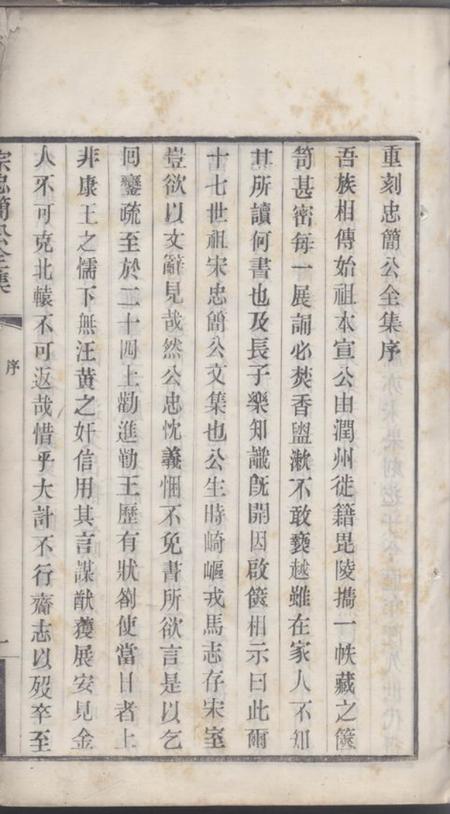 重刻忠簡公全集序
吾族相傳始祖本宣公由潤州徙籍毘陵攜一帙藏之篋
笥甚密每一展誦必焚香盥漱不敢褻越雖在家人不知
其所讀何書也及長子樂知識旣開因啟篋相示曰此爾
十七世祖宋忠簡公文集也公生時崎嶇戎馬志存宋室
豈欲以文辭見哉然公忠忱義悃不免書所欲言是以乞
回鑾疏至於二十四上勸進勤王歷有狀劄使當日者上
非康王之懦下無汪黃之奸信用其言謀猷獲展安見金
人不可克北轅不可返哉惜乎大計不行齎志以歿卒至
宗忠簡公全集
序
一